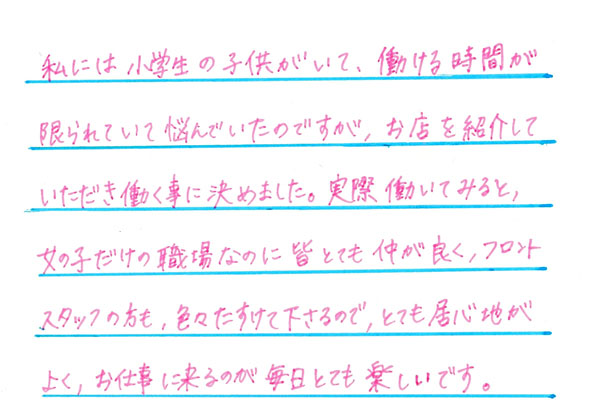 私には小学生の子供がいて、働ける時間が
限られていて悩んでいたのですが, お店を紹介して
いただき働く事に決めました。実際働いてみると,
女の子だけの職場なのに皆とても仲が良く, フロント
スタッフの方も, 色々たすけて下さるので, とても居心地が
よく, お仕事に来るのが毎日とても楽しいです。